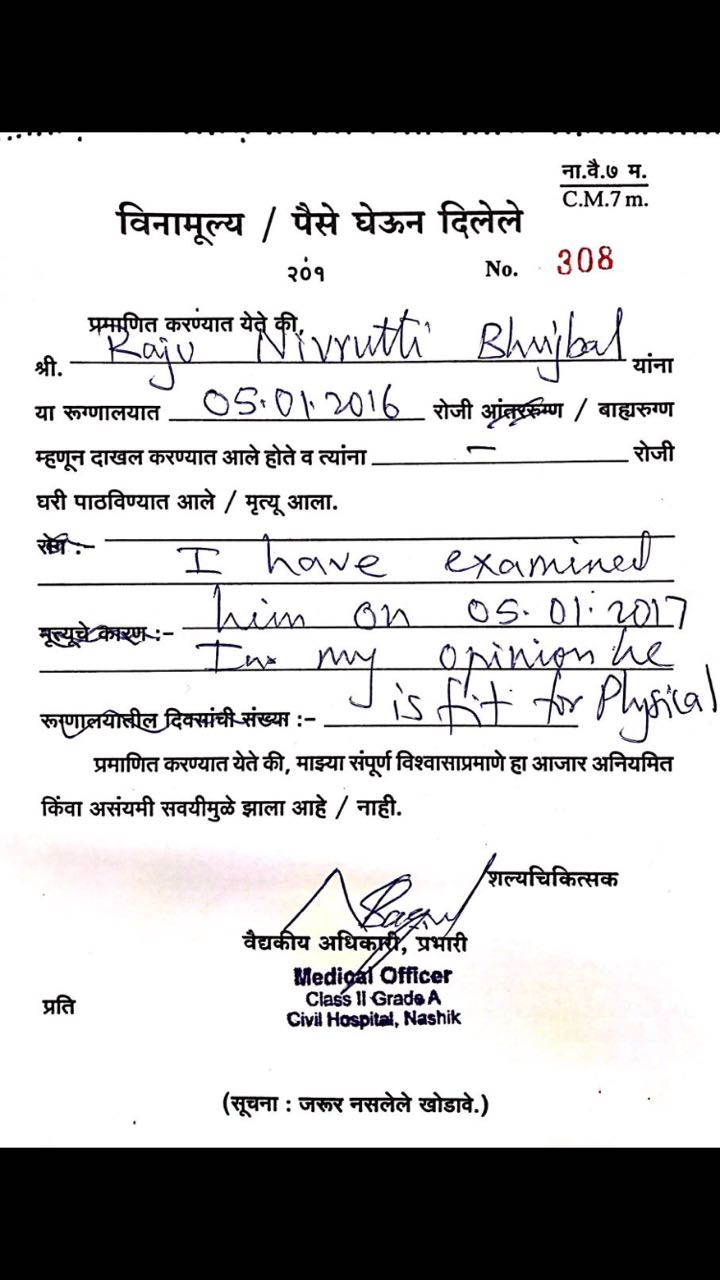 ना.वै.७ म.
C.M.7 m.
विनामूल्य / पैसे घेऊन दिलेले
२०१
No. 308
प्रमाणित करण्यात येते की,
श्री. Raju Nivrutti Bhujbal यांना
या रूग्णालयात 05.01.2016 रोजी आंतररुग्ण / बाह्यरुग्ण
म्हणून दाखल करण्यात आले होते व त्यांना - रोजी
घरी पाठविण्यात आले / मृत्यू आला.
रोग :-
I have examined
him on 05.01.2017
मृत्यूचे कारण :-
In my opinion he
is fit for Physical
रूग्णालयातील दिवसांची संख्या :-
प्रमाणित करण्यात येते की, माझ्या संपूर्ण विश्वासाप्रमाणे हा आजार अनियमित
किंवा असंयमी सवयीमुळे झाला आहे / नाही.
शल्यचिकित्सक
वैद्यकीय अधिकारी, प्रभारी
Medical Officer
Class II Grade A
Civil Hospital, Nashik
प्रति
(सूचना : जरूर नसलेले खोडावे.)